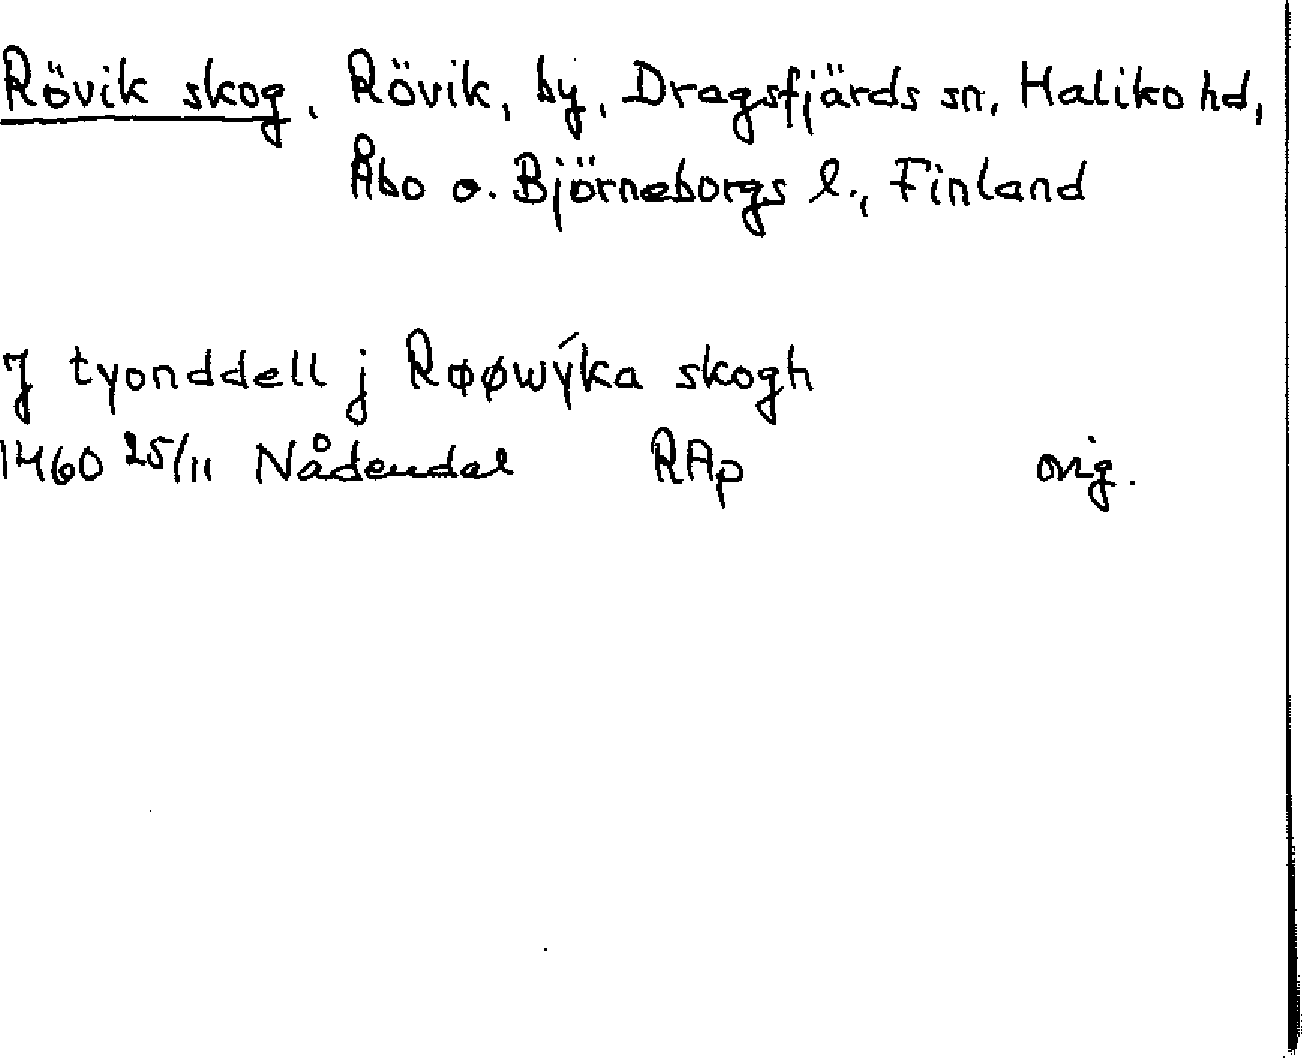 Rövik skog, Rövik, by, Dragsfjärds sn, Haliko hd,
Åbo o. Björneborgs l., Finland
J tyonddell j Røøwýka skogh
1460 25/11 Nådendal RAp orig.